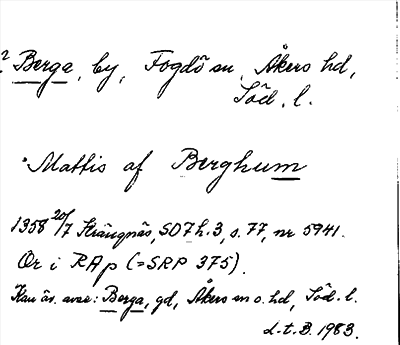 ? Berga, by, Fogdö sn, Åkers hd,
Söd. l.
"Mattis af Berghum
1358 20/7 Strängnäs, SD 7 h. 3, s. 77, nr 5941.
Or i RAp (=SRP 375).
Kan äv. avse: Berga, gd, Åkers sn o. hd, Söd. l.
L.t.B. 1983.